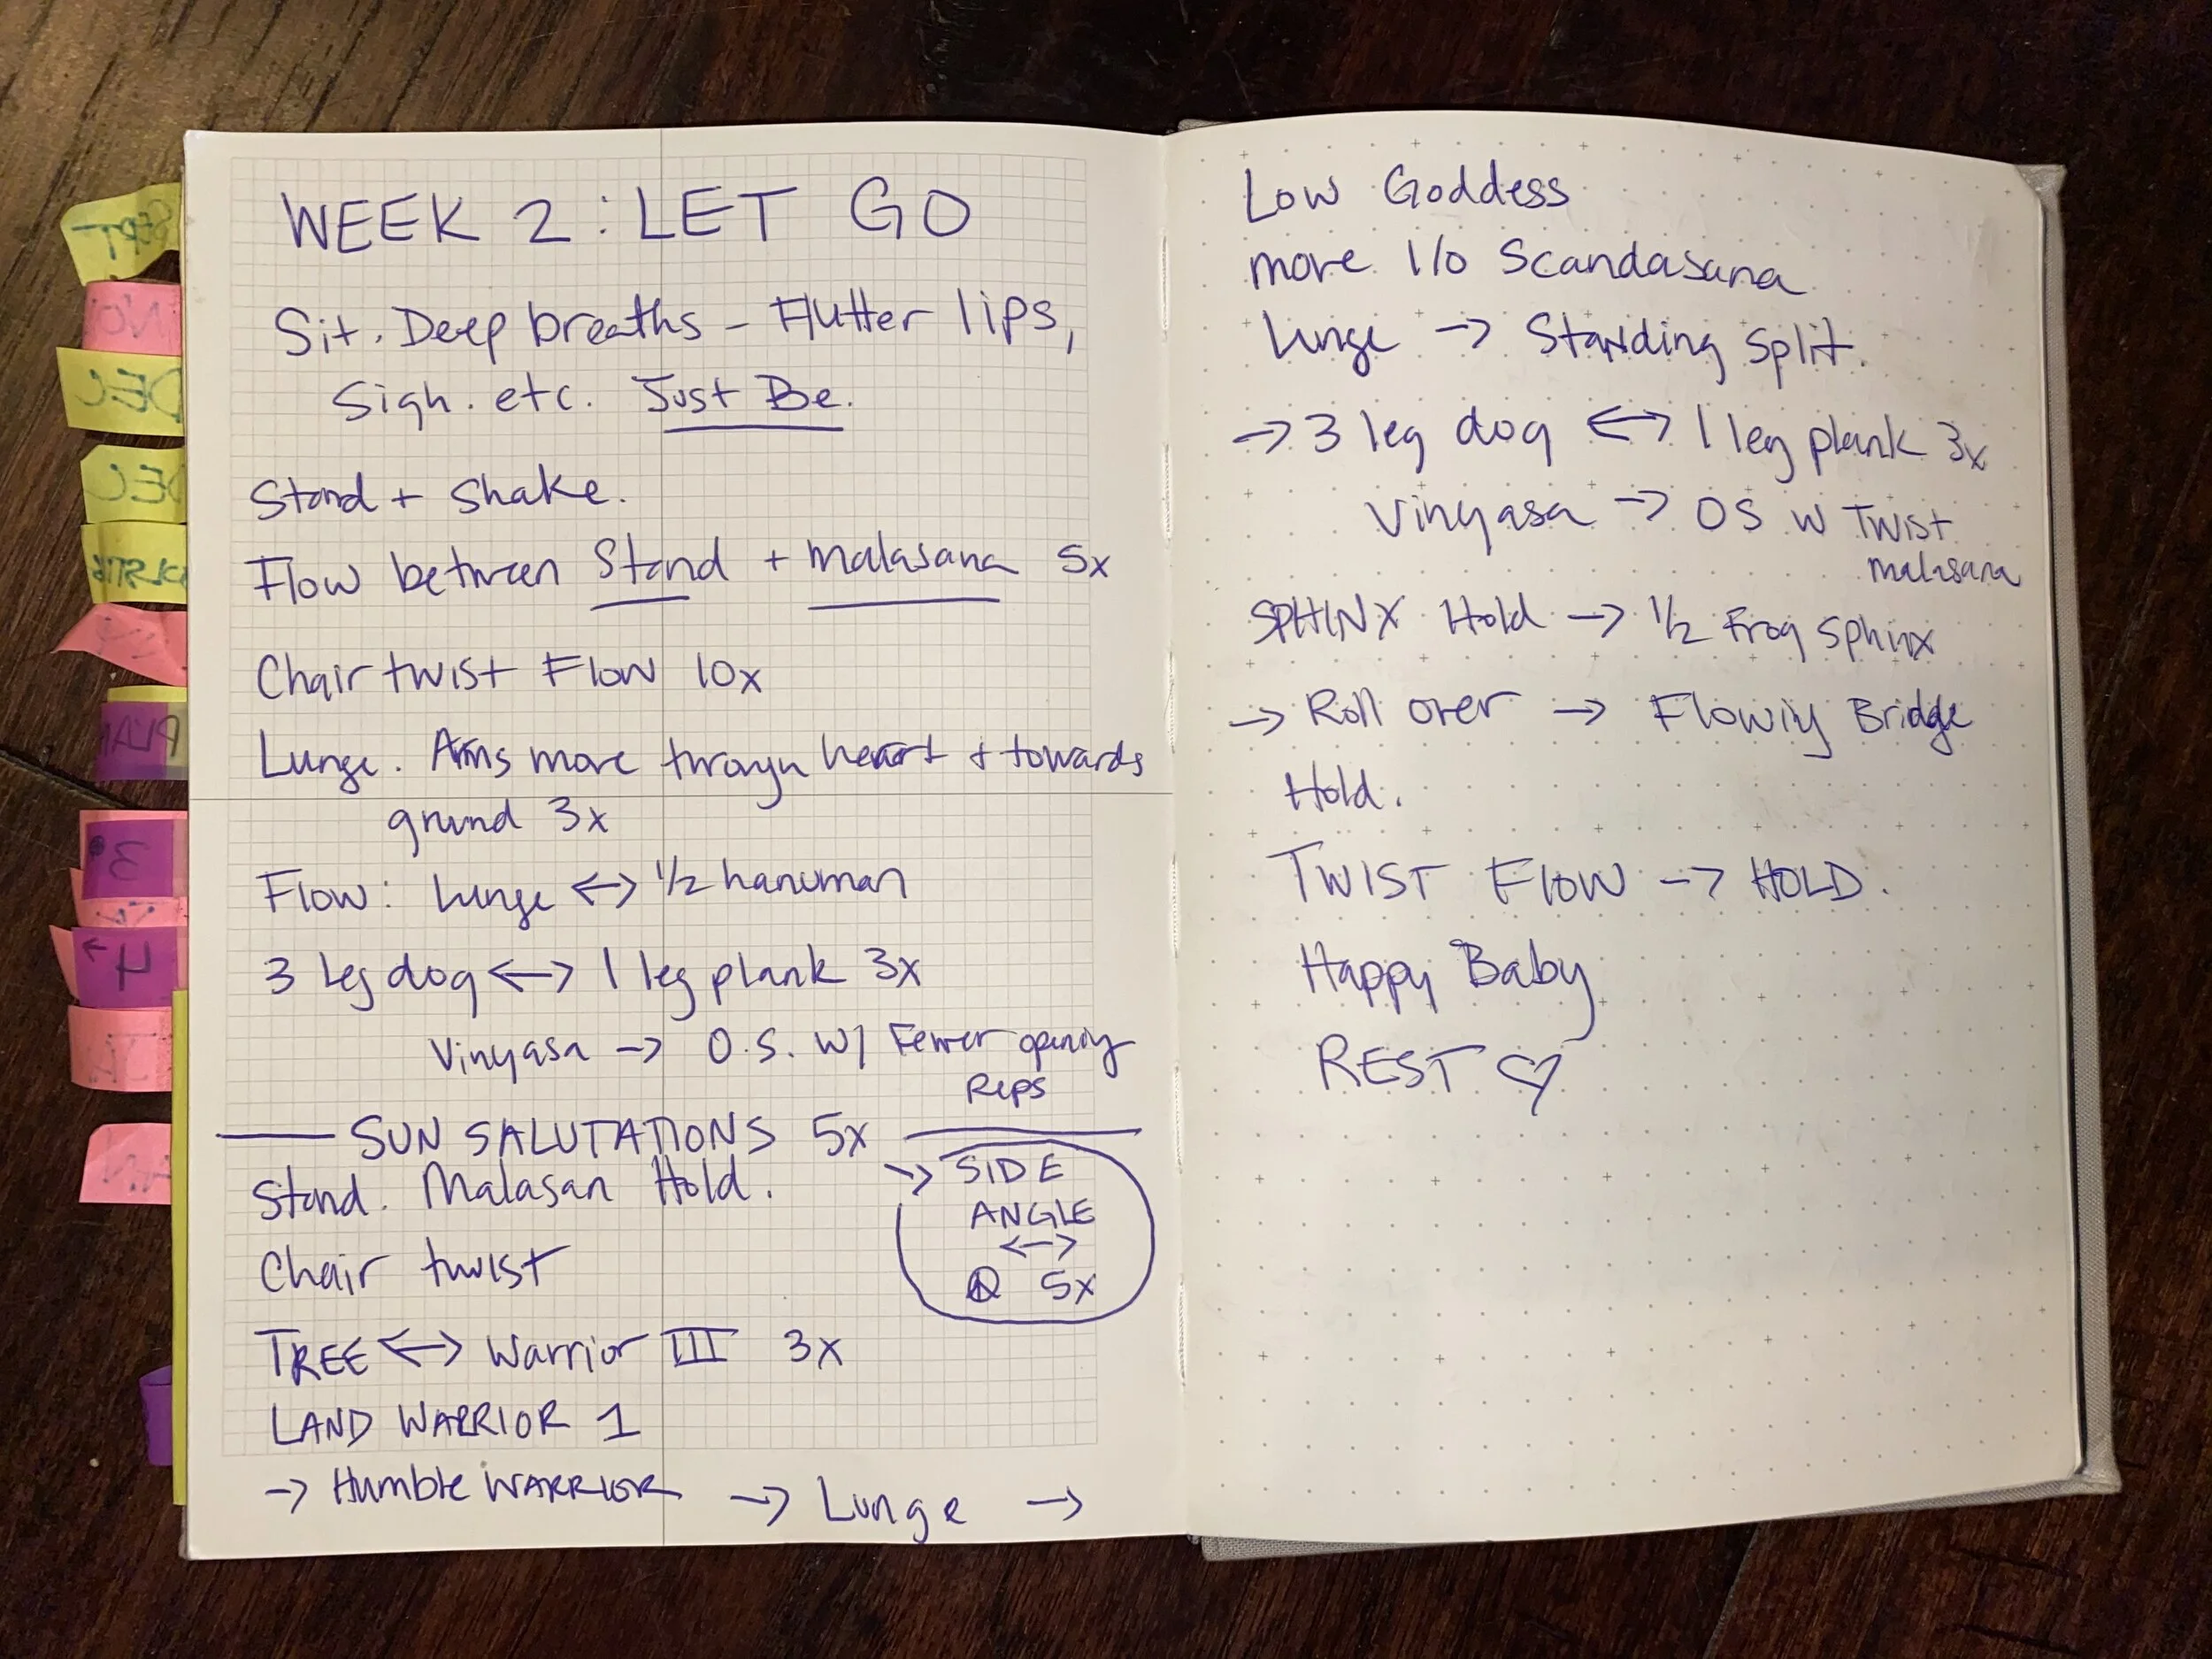 WEEK 2: LET GO
Sit. Deep breaths - Flutter lips,
Sigh. etc. Just Be.
Stand + Shake.
Flow between Stand + Malasana 5x
Chair twist Flow 10x
Lunge. Arms more through heart + towards
ground 3x
Flow: Lunge <-> 1/2 hanuman
3 Leg dog <-> 1 leg plank 3x
Vinyasa -> O.S. w/ Fewer opening
Reps
SUN SALUTATIONS 5x
Stand. Malasan Hold.
Chair twist
-> SIDE
ANGLE
<->
5x
TREE <-> Warrior III 3x
LAND WARRIOR 1
-> Humble WARRIOR -> Lunge ->
Low Goddess
more 1/0 Scandasana
Lunge -> Standing Split.
-> 3 leg dog <-> 1 leg plank 3x
Vinyasa -> OS w Twist
malasana
SPHINX Hold -> 1/2 Frog Sphinx
-> Roll over -> Flowing Bridge
Hold.
TWIST FLOW -> HOLD.
Happy Baby
REST ♡
SEPT
NO
DEC
DEC
PLAN
3
4